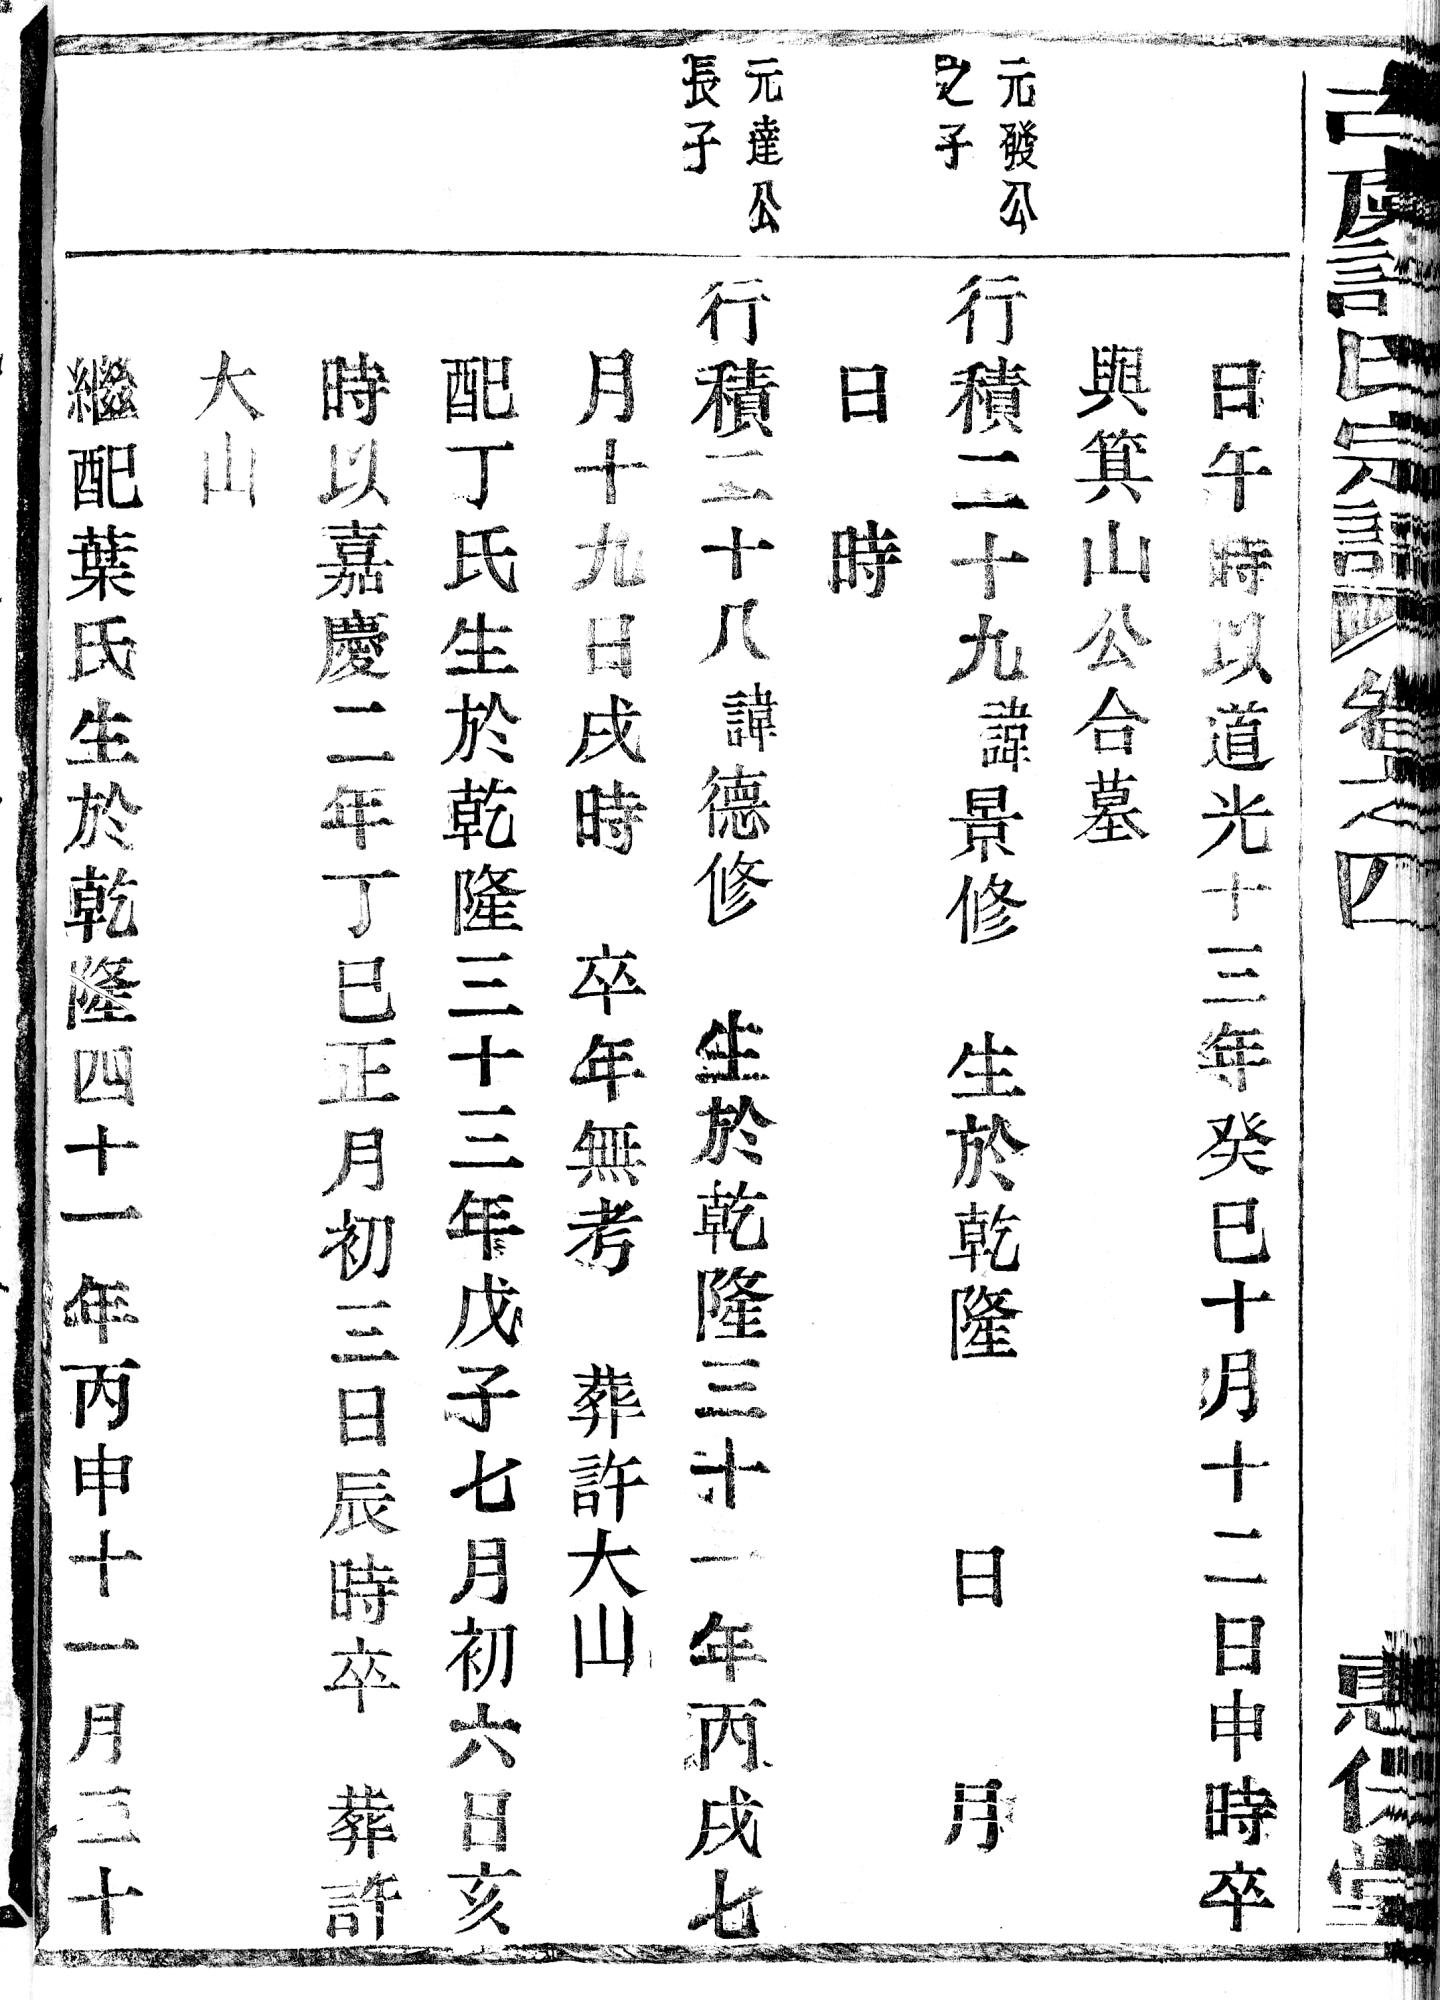 古虞許氏宗譜 卷之四 惠倫堂
日午時以道光十三年癸巳十月十二日申時卒
與箕山公合墓
元發公
之子
行積二十九諱景修 生於乾隆 日 月
日 時
元達公
長子
行積二十八諱德修 生於乾隆三十一年丙戌七
月十九日戌時 卒年無考 葬許大山
配丁氏生於乾隆三十三年戊子七月初六日亥
時以嘉慶二年丁巳正月初三日辰時卒 葬許
大山
繼配葉氏生於乾隆四十一年丙申十一月三十